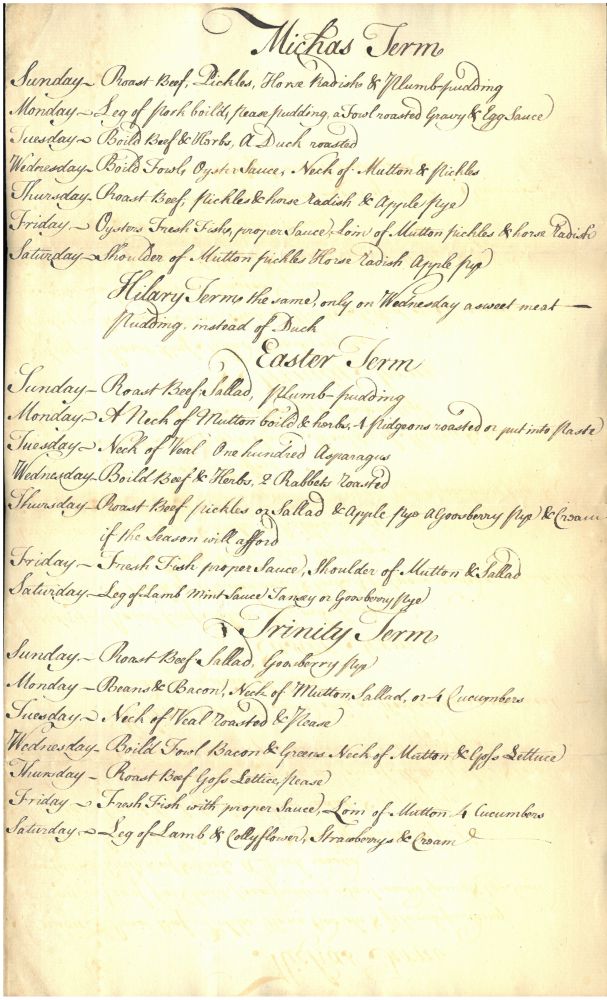 Michas Term
Sunday – Roast Beef, Pickles, Horse Radish & Plumb-pudding
Monday – Leg of Pork boild, Pease Pudding, a Fowl roasted Gravy & Egg Sauce
Tuesday – Boild Beef & Herbs, A Duck roasted
Wednesday – Boild Fowl, Oyster Sauce, Neck of Mutton & Pickles
Thursday – Roast Beef, Pickles & horse radish & Apple Pye
Friday – Oysters Fresh Fish, proper Sauce, Loin of Mutton pickles & horse Radish
Saturday – Shoulder of Mutton pickles Horse radish Apple pye
Hilary Term the same, only on Wednesday a sweet meat —
Pudding, instead of Duck
Easter Term
Sunday – Roast Beef Sallad, Plumb-pudding
Monday – A Neck of Mutton boild & herbs, 4 Pidgeons roasted or put into Paste
Tuesday – Neck of Veal One hundred Asparagus
Wednesday – Boild Beef & Herbs, 2 Rabbets roasted
Thursday – Roast Beef pickles or Sallad & Apple Pye A Goosberry Pye & Cream
if the Season will afford
Friday – Fresh Fish proper Sauce, Shoulder of Mutton & Sallad
Saturday – Leg of Lamb Mint Sauce Tansey or Gooseberry Pye
Trinity Term
Sunday – Roast Beef Sallad, Goosberry Pye
Monday – Beans & Bacon, Neck of Mutton, Sallad, or 4 Cucumbers
Tuesday – Neck of Veal roasted & Pease
Wednesday – Boild Fowl Bacon & Greens Neck of Mutton & Goss Lettuce
Thursday – Roast Beef Goss Lettice, Pease
Friday – Fresh Fish with proper Sauce, Loin of Mutton, 4 Cucumbers
Saturday – Leg of Lamb & Collyflower, Strawberrys & Cream